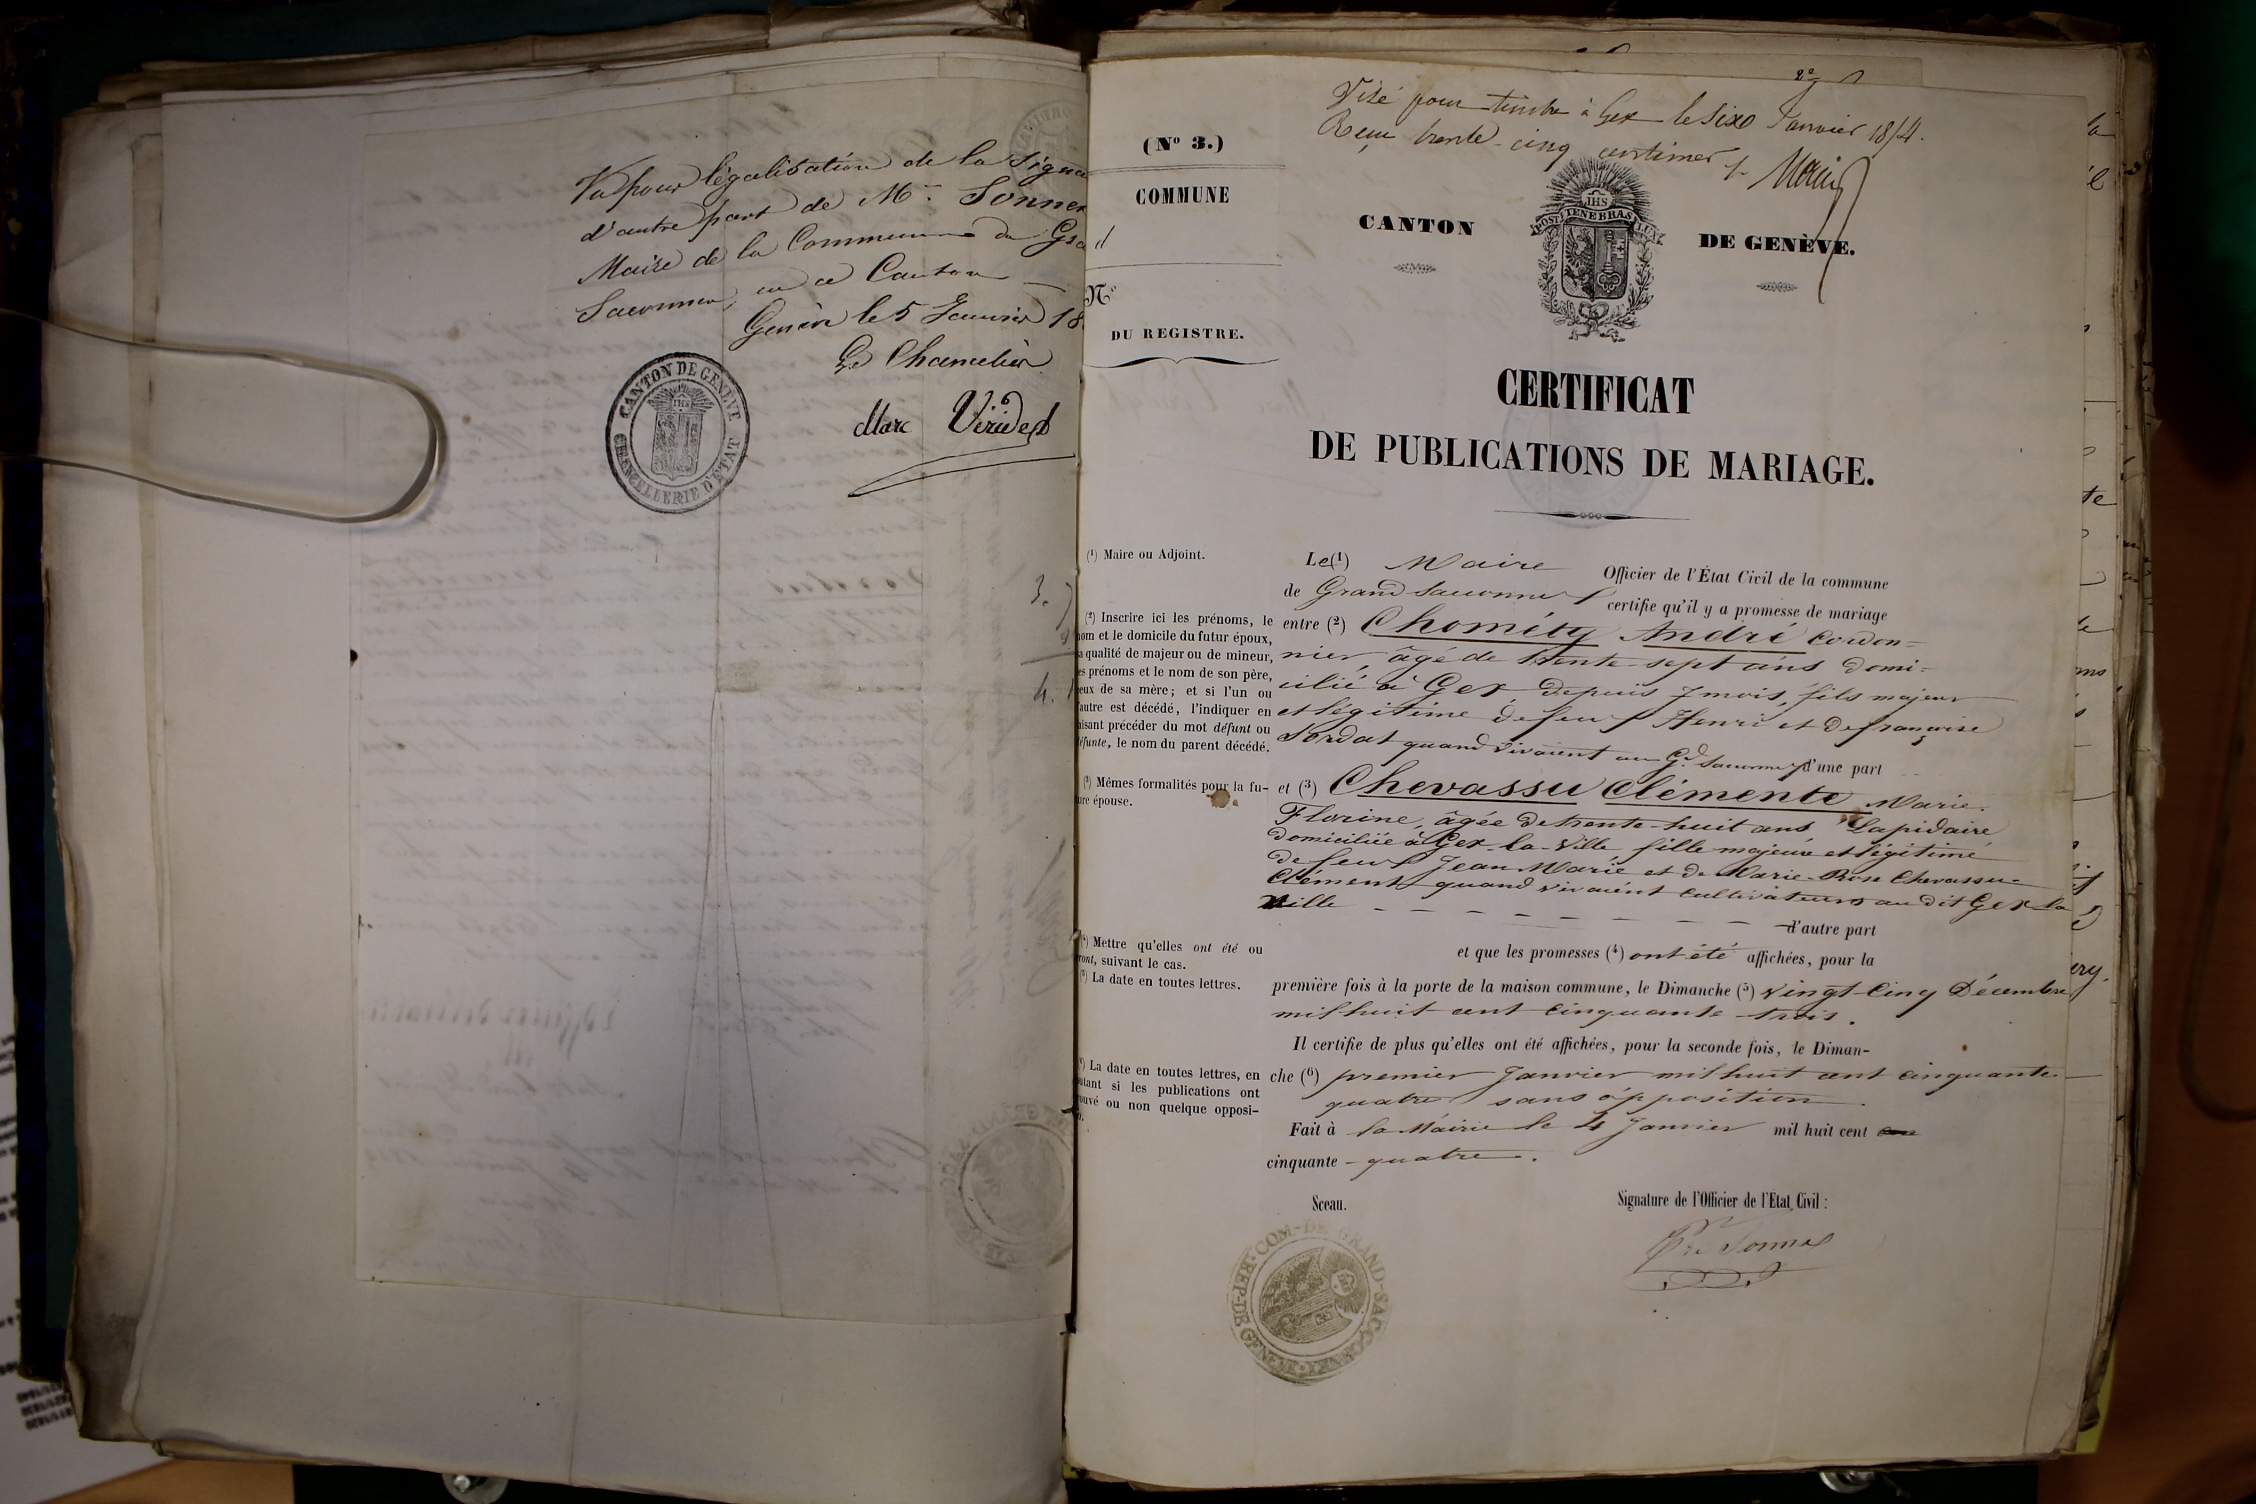 Vu pour légalisation de la Signa
d'autre part de Mr. Sonnex
Maire de la Commune du Gra
Saconnex, en ce Canton
Genève le 5 Janvier 18
Le Chancelier
Marc Viridet
CANTON DE GENÈVE
CHANCELLERIE D'ETAT
Visé pour timbre à Gex le six Janvier 1854.
Reçu trente-cinq centimes
(No 3.)
COMMUNE
d
No
DU REGISTRE.
CANTON DE GENÈVE.
IHS
POST TENEBRAS LUX
CERTIFICAT
DE PUBLICATIONS DE MARIAGE.
(1) Maire ou Adjoint.
(2) Inscrire ici les prénoms, le
nom et le domicile du futur époux,
a qualité de majeur ou de mineur,
es prénoms et le nom de son père,
eux de sa mère; et si l'un ou
'autre est décédé, l'indiquer en
aisant précéder du mot défunt ou
éfunte, le nom du parent décédé.
(3) Mêmes formalités pour la fu-
ure épouse.
(4) Mettre qu'elles ont été ou
ront, suivant le cas.
(5) La date en toutes lettres.
(6) La date en toutes lettres, en
outant si les publications ont
ouvé ou non quelque opposi-
Le (1) Maire Officier de l'État Civil de la commune
de Grand Saconnex certifie qu'il y a promesse de mariage
entre (2) Chométy André Cordon=
nier, âgé de trente-sept ans domi=
cilié à Gex depuis 7 mois, fils majeur
et légitime de feu Henri et de françoise
Sordat quand vivaient au Gd. Saconnex d'une part
et (3) Chevassu Clémente Marie
Florine, âgée de trente-huit ans Lapidaire
domiciliée à Gex-la-Ville fille majeure et légitime
de feu Jean Marie et de Marie-Rose Chevassu-
Clément quand vivaient cultivateurs au dit Gex la
Ville
d'autre part
et que les promesses (4) ont été affichées, pour la
première fois à la porte de la maison commune, le Dimanche (5) vingt-Cinq Décembre
mil huit cent cinquante-trois.
Il certifie de plus qu'elles ont été affichées, pour la seconde fois, le Diman-
che (6) premier Janvier mil huit cent cinquante
quatre sans opposition.
Fait à la Mairie le 4 Janvier mil huit cent
cinquante-quatre.
Sceau.
Signature de l'Officier de l'Etat Civil :
Sonnex
REP. DE GENÈVE COM-DE GRAND-SACCONNEX